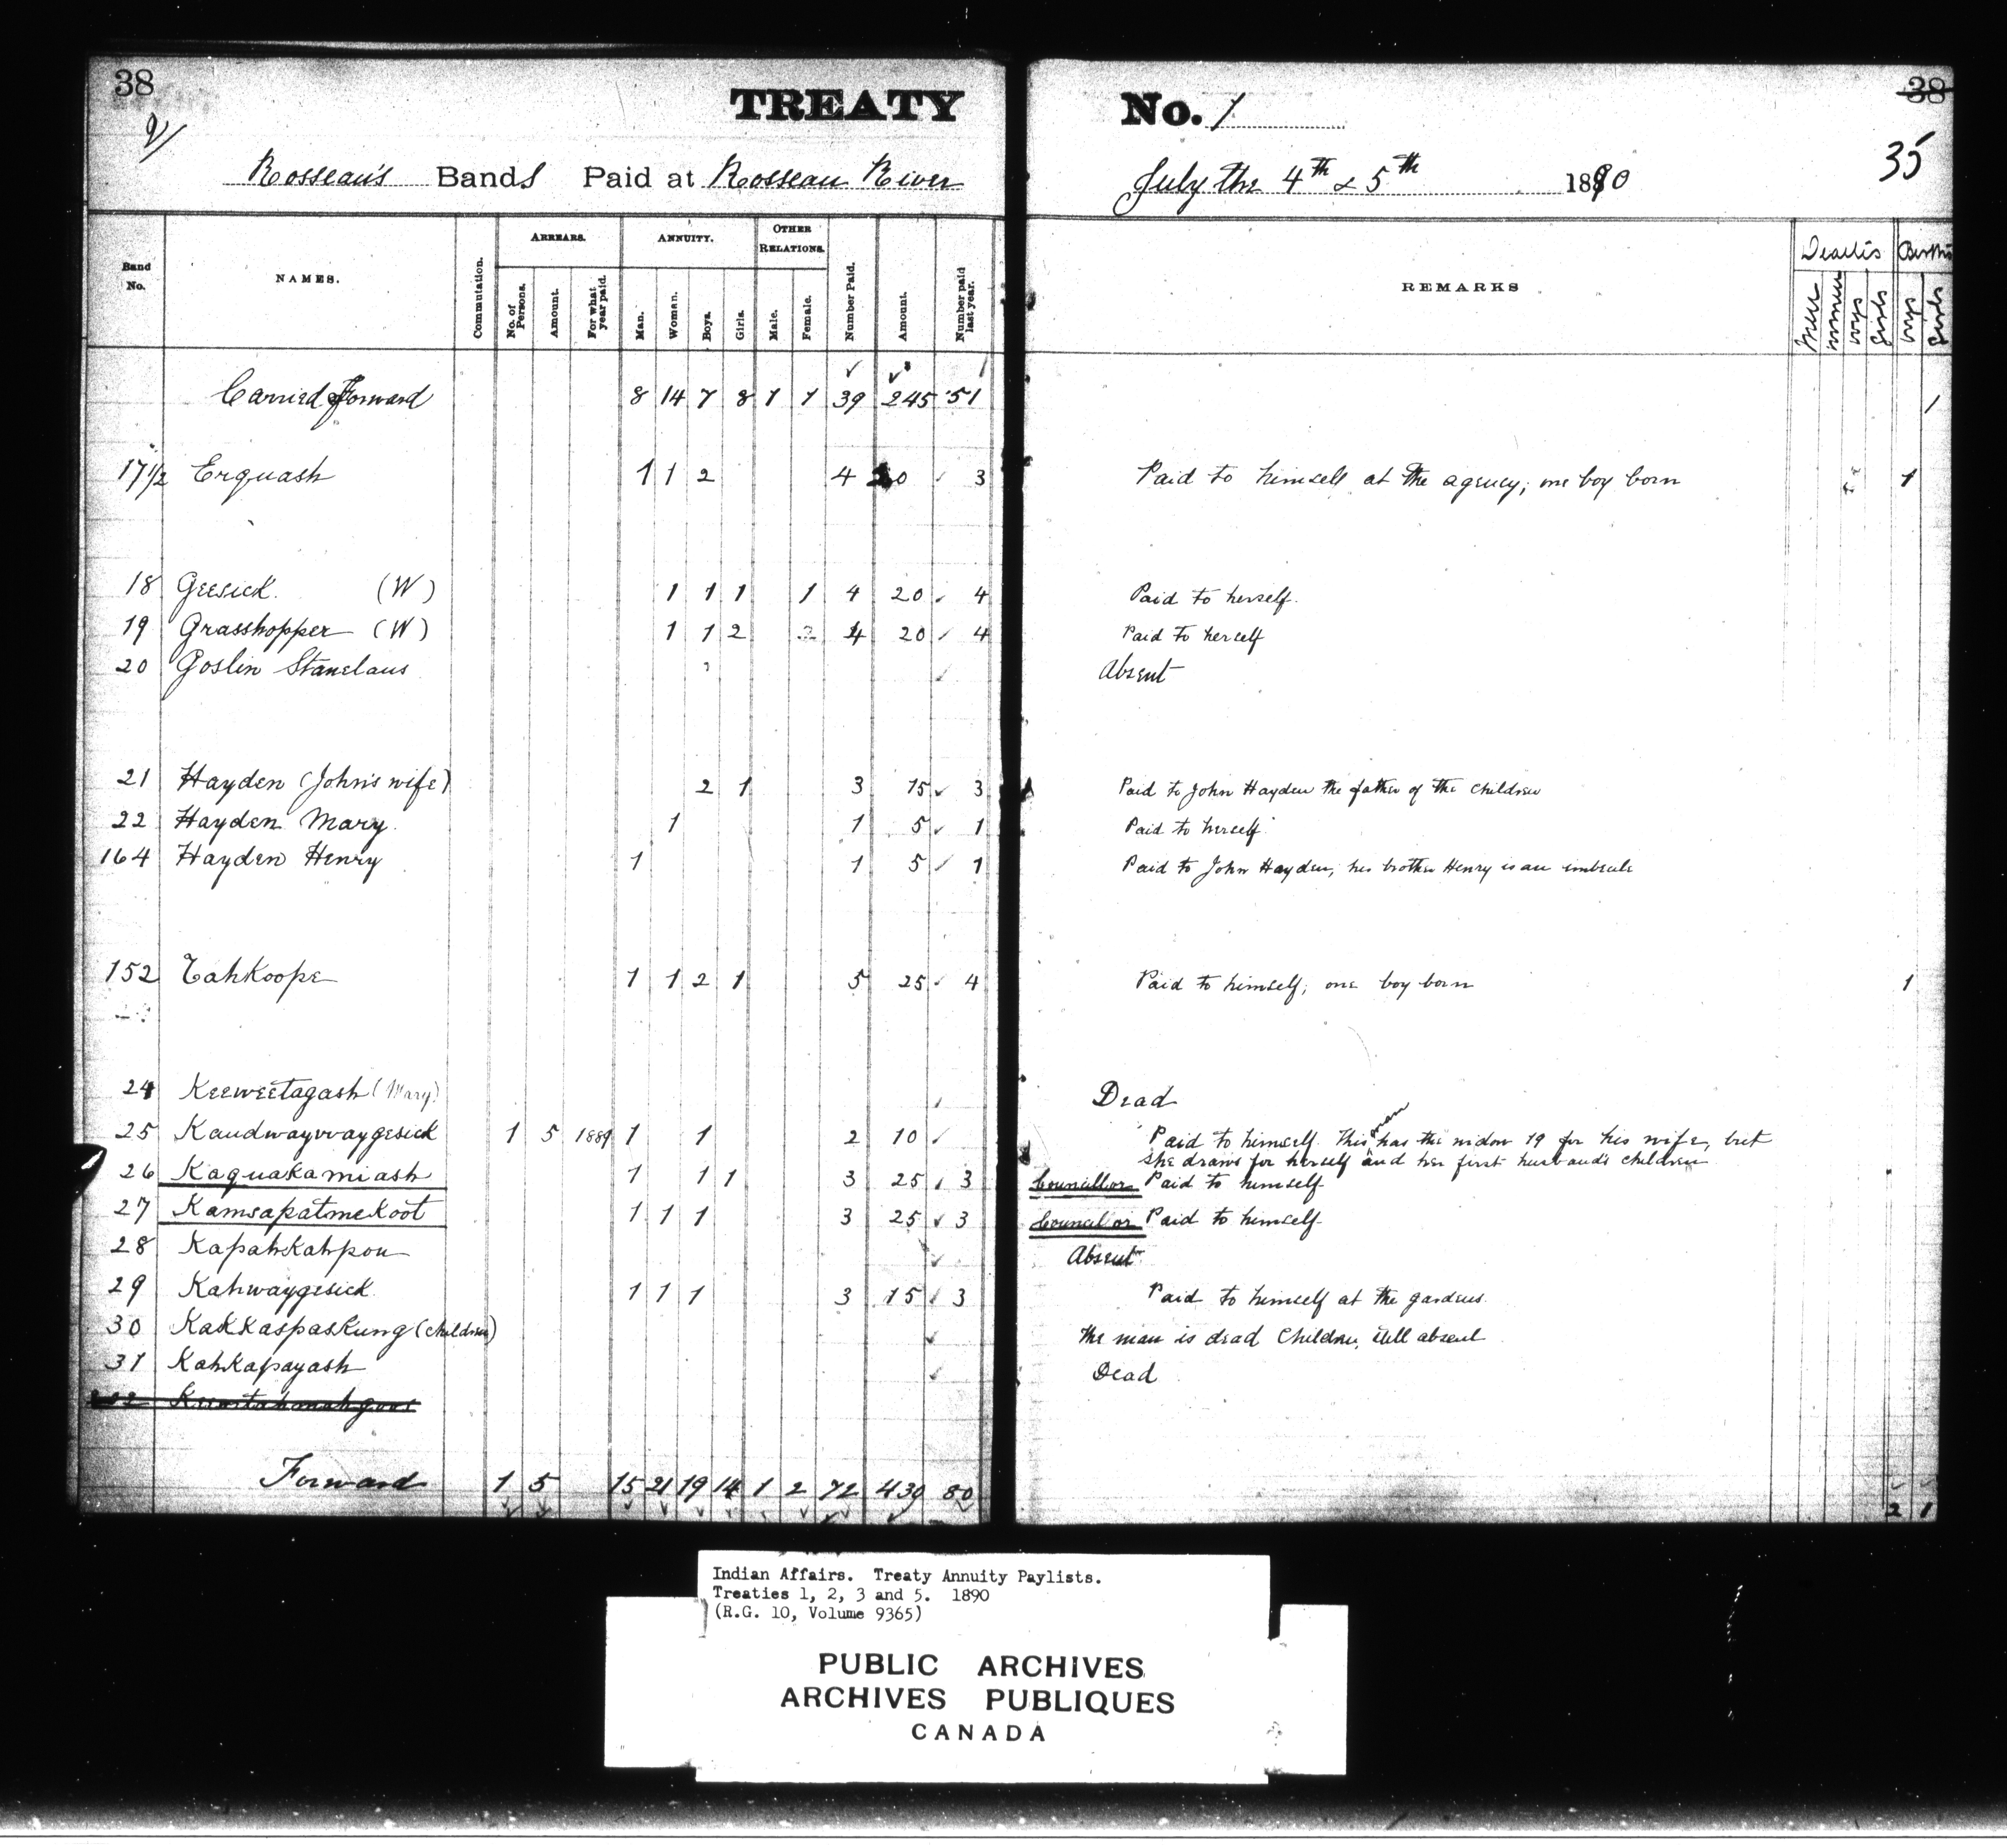 38
TREATY
No. 1
38
35
Rosseau's Bands Paid at Rosseau River
July the 4th & 5th 1890
Band No.
NAMES.
Commutation.
ARREARS.
No. of Persons.
Amount.
For what year paid.
ANNUITY.
Man.
Woman.
Boys.
Girls.
OTHER RELATIONS.
Male.
Female.
Number Paid.
Amount.
Number paid last year.
REMARKS
Deaths
Men
women
boys
girls
Births
boys
girls
Carried Forward 8 14 7 8 1 1 39 245 51 1
17 1/2 Erquash 1 1 2 4 20 3 Paid to himself at the agency; one boy born 1
18 Geesick. (W) 1 1 1 1 4 20 4 Paid to herself.
19 Grasshopper (W) 1 1 2 4 20 4 Paid to herself
20 Goslin Stanelaus Absent
21 Hayden (John's wife) 2 1 3 15 3 Paid to John Hayden the father of the children
22 Hayden Mary. 1 1 5 1 Paid to herself
164 Hayden Henry 1 1 5 1 Paid to John Hayden; his brother Henry is an imbecile
152 TahKoope 1 1 2 1 5 25 4 Paid to himself; one boy born 1
24 Keeweetagash (Mary) Dead
25 Kaudwaywaygesick 1 5 1889 1 1 2 10 Paid to himself. This man has the widow 19 for his wife, but
she draws for herself and her first husband's children
26 Kaquakamiash 1 1 1 3 25 3 Councillor Paid to himself
27 Kamsapatmekoot 1 1 1 3 25 3 Councilor Paid to himself
28 Kapahkahpou Absent
29 Kahwaygesick 1 1 1 3 15 3 Paid to himself at the gardens.
30 Kakkaspaskung (children) the man is dead Children, still absent
31 Kahkapayash Dead
Forward 1 5 15 21 19 14 1 2 72 430 80
2 1
Indian Affairs. Treaty Annuity Paylists.
Treaties 1, 2, 3 and 5. 1890
(R.G. 10, Volume 9365)
PUBLIC ARCHIVES
ARCHIVES PUBLIQUES
CANADA